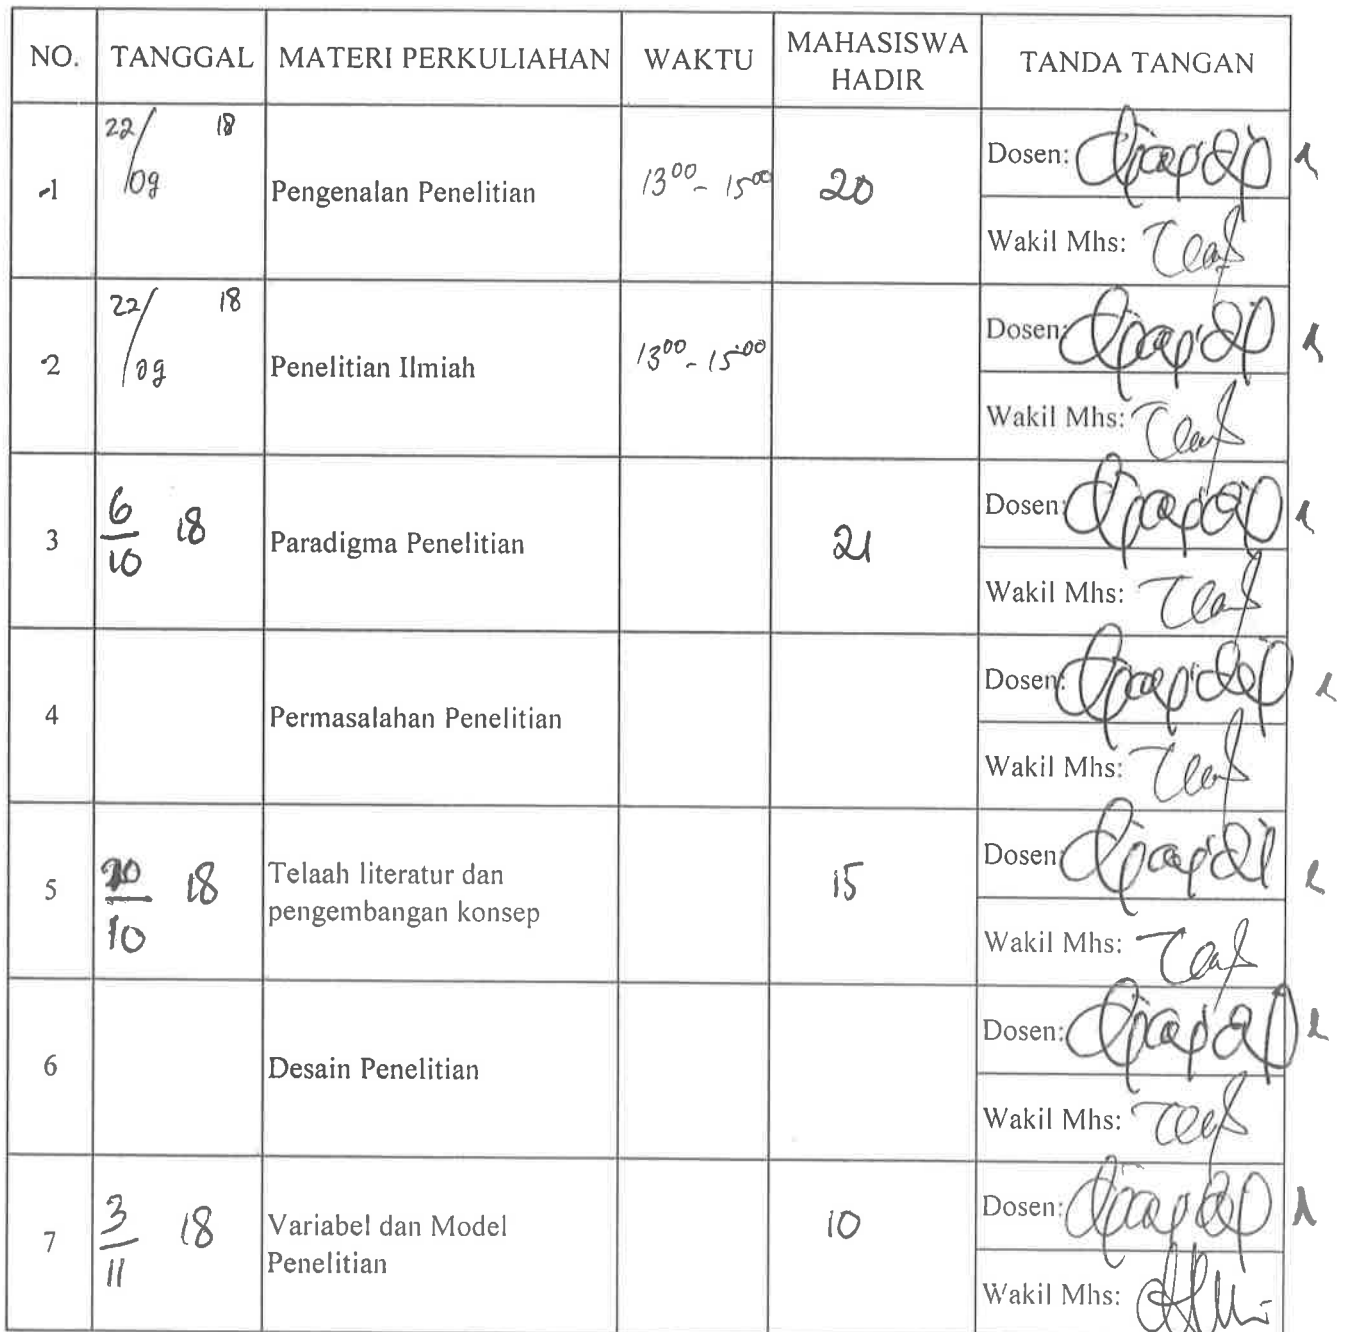 NO. TANGGAL MATERI PERKULIAHAN WAKTU MAHASISWA HADIR TANDA TANGAN
1 22/09 18 Pengenalan Penelitian 13⁰⁰ - 15⁰⁰ 20 Dosen:
Wakil Mhs:
2 22/09 18 Penelitian Ilmiah 13⁰⁰ - 15⁰⁰ Dosen:
Wakil Mhs:
3 6/10 18 Paradigma Penelitian 21 Dosen:
Wakil Mhs:
4 Permasalahan Penelitian Dosen:
Wakil Mhs:
5 /10 18 Telaah literatur dan 15 Dosen:
pengembangan konsep
Wakil Mhs:
6 Desain Penelitian Dosen:
Wakil Mhs:
7 3/11 18 Variabel dan Model 10 Dosen:
Penelitian
Wakil Mhs: